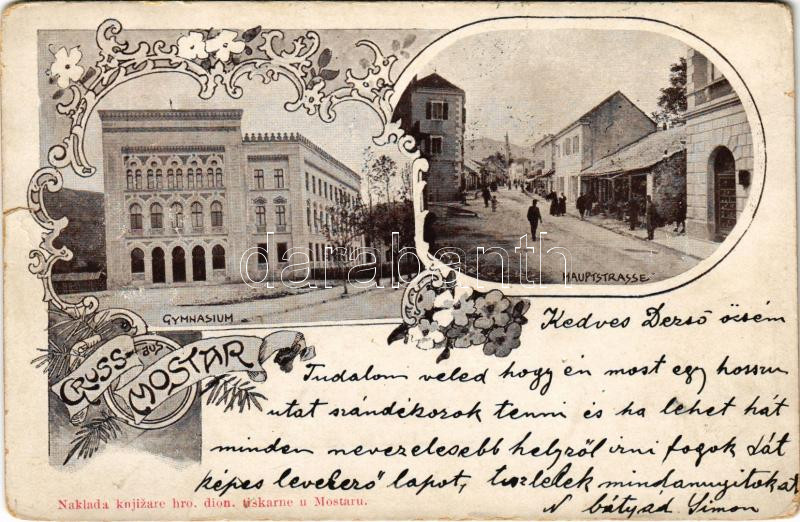 GYMNASIUM
HAUPTSTRASSE
GRUSS
aus
MOSTAR
darabanth
Kedves Dezső öcsém
Tudalom veled hogy én most egy hosszu
utat szándékozok tenni és ha lehet hát
minden nevezelesebb helyről irni fogok Hát
képes levelező lapot, tisztelek mindanyitokat
bátyád Simon
Naklada knjižare hro. dion. tiskarne u Mostaru.